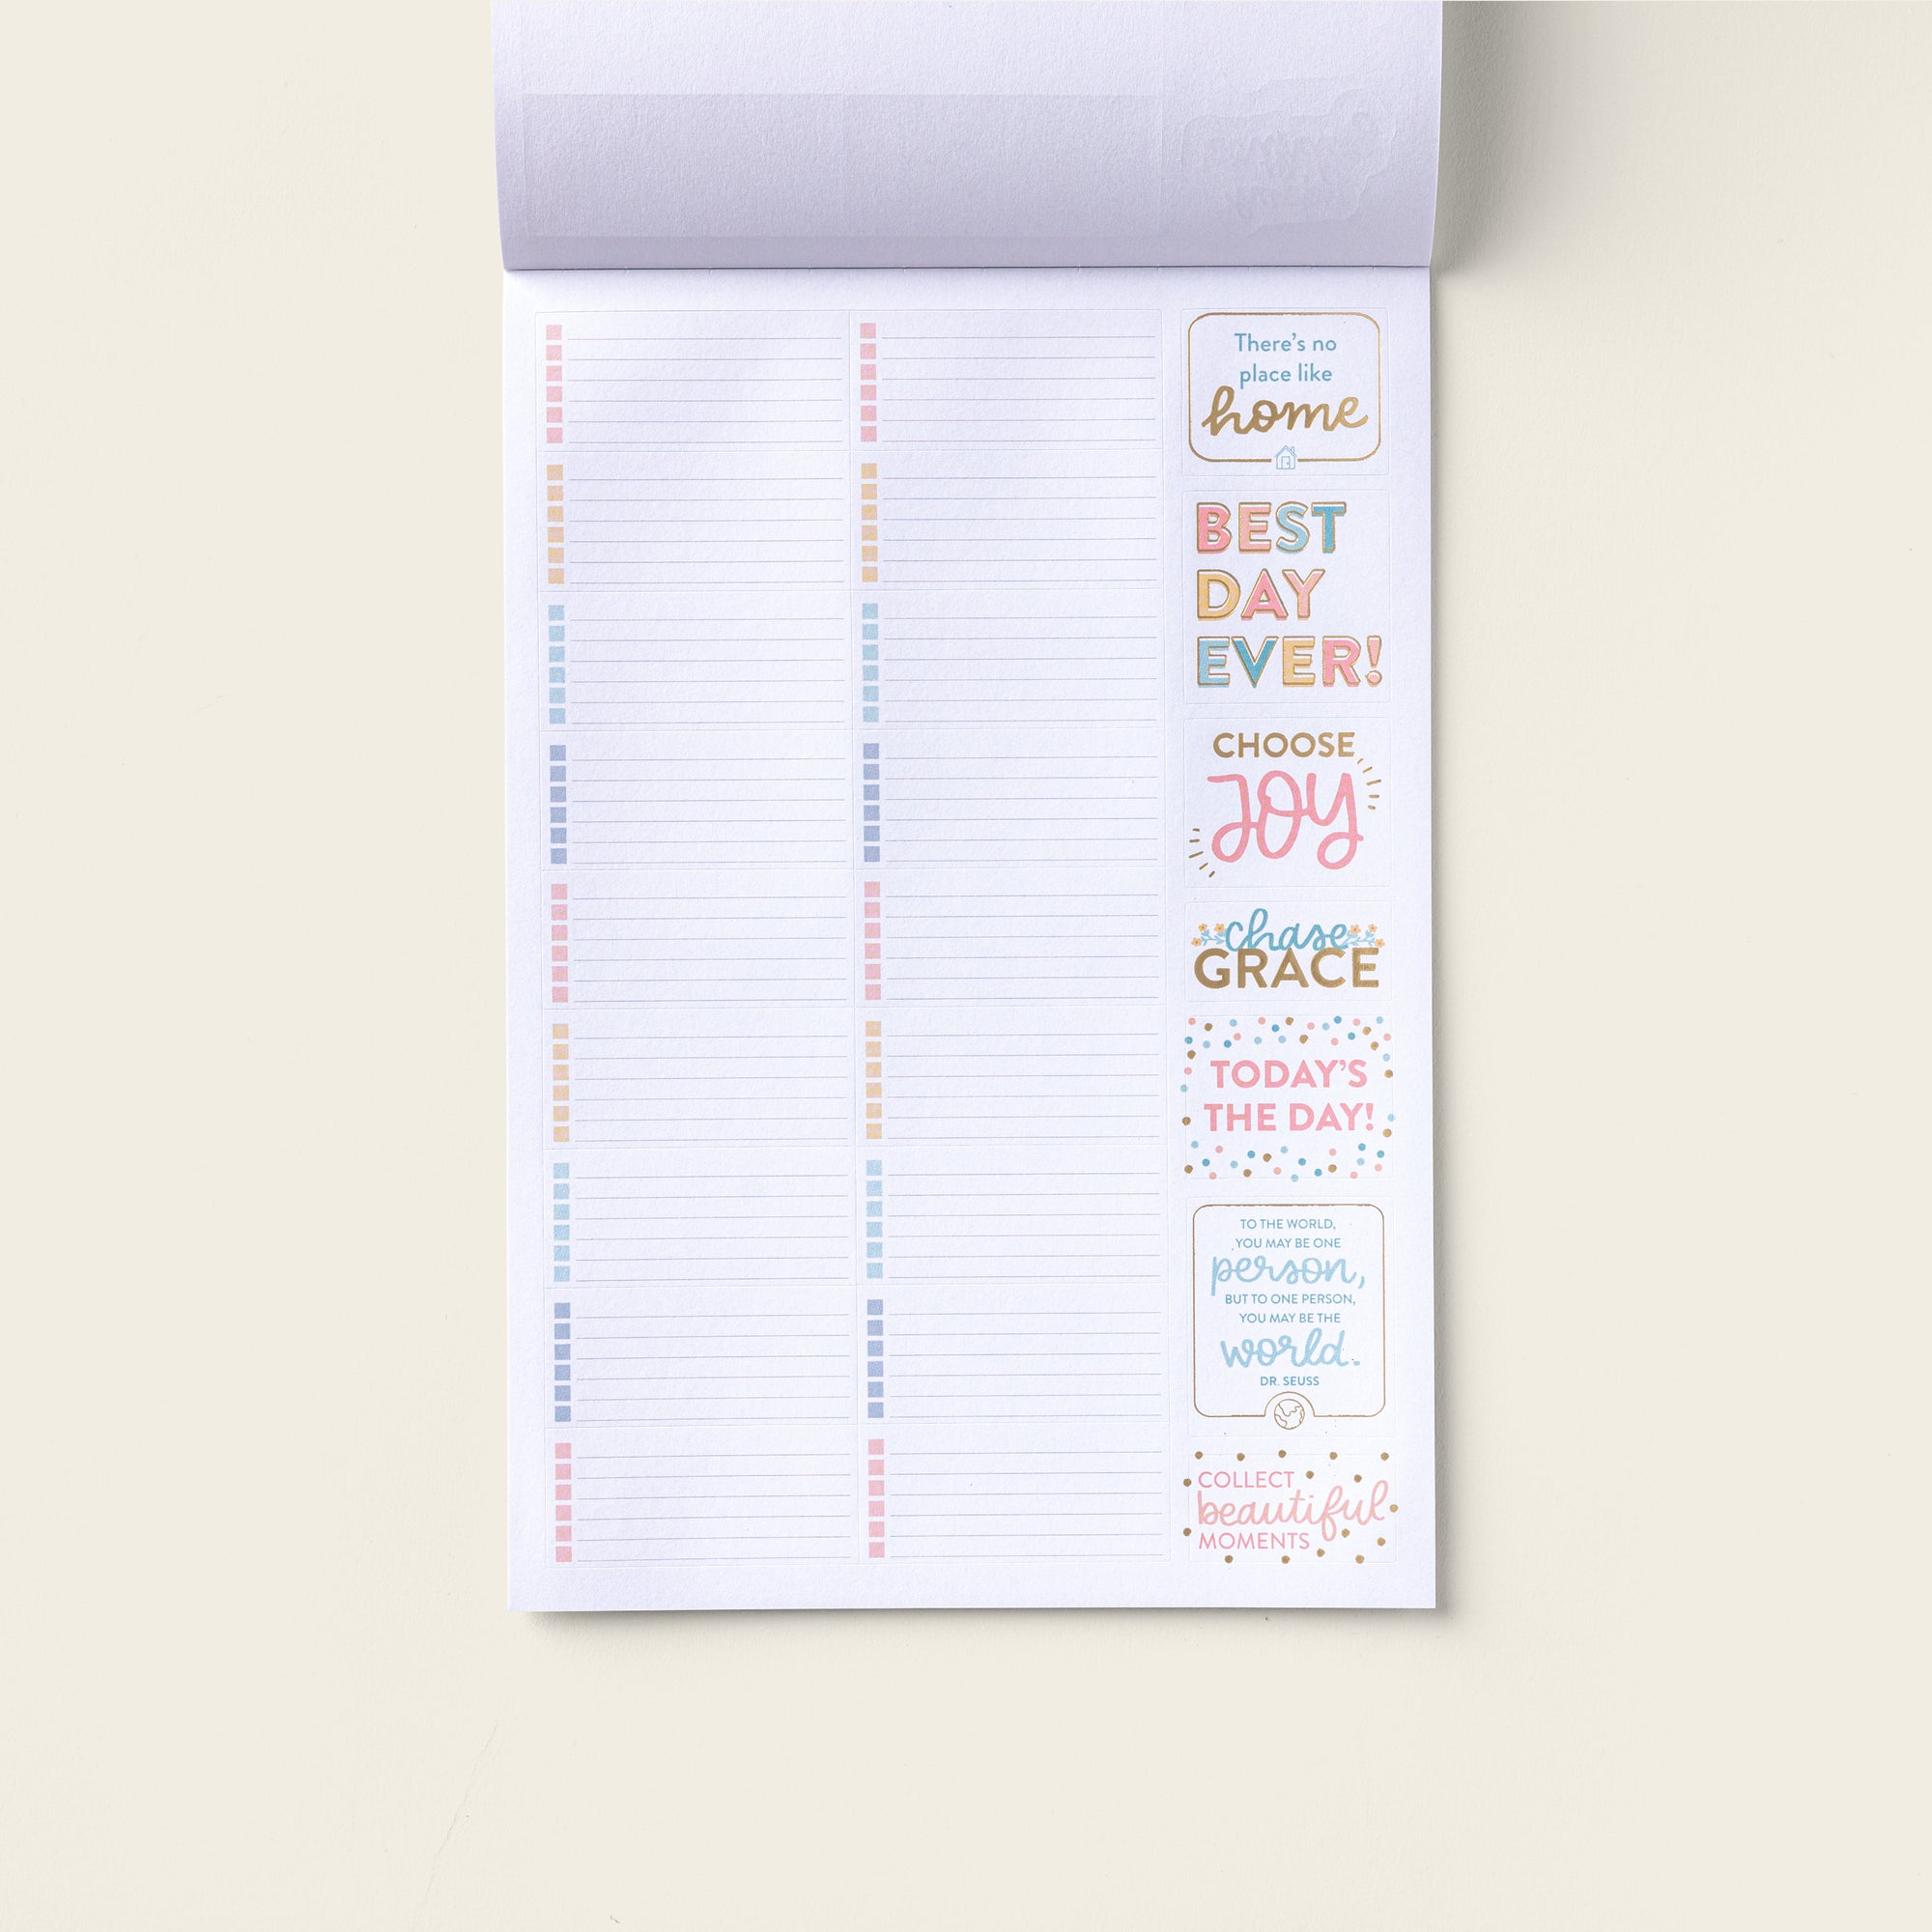 There's no
place like
home
BEST
DAY
EVER!
CHOOSE
JOY
chase
GRACE
TODAY'S
THE DAY!
TO THE WORLD,
YOU MAY BE ONE
person,
BUT TO ONE PERSON,
YOU MAY BE THE
world.
DR. SEUSS
COLLECT
beautiful
MOMENTS